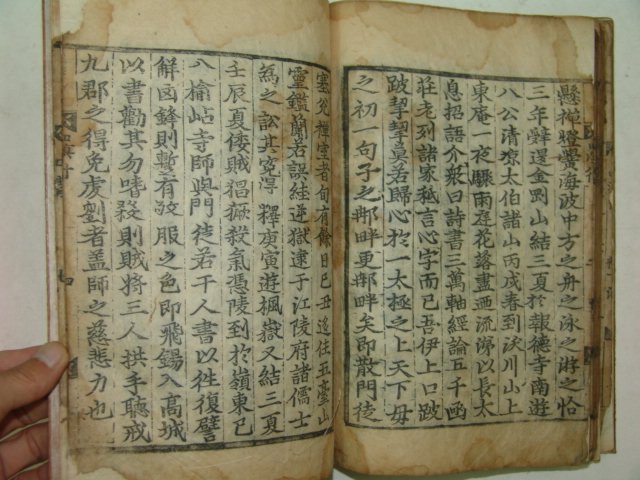 懸樿燈海波中方之舟之泳之游之恰
三年辭還金剛山結三夏於報德寺南遊
八公清凉太伯諸山丙戌春到沃川山上
東庵一夜驟雨庭花落盡洒流滂以長太
息招語介衆曰詩書三萬軸經論五千函
莊老列諸家秘言心字而已吾伊上口跛
跛挈挈奚若歸心於一太極之上天下毋
之初一句子之那畔更那畔矣即散門徒
塞兌禪室者旬有餘日己丑適住五臺山
靈鑑蘭若誤絓逆獄逮于江陵府諸儒士
爲之訟其寃得釋庚寅遊楓嶽又結三夏
壬辰夏倭賊猖蹶殺氣憑陵到於嶺東已
入榆岾寺師與門徒若干人書以徃復譬
解凶鋒則暫有敬服之色即飛錫入高城
以書勸其勿嗜殺則賊將三人拱手聽戒
九郡之得免虔劉者盖師之慈悲力也